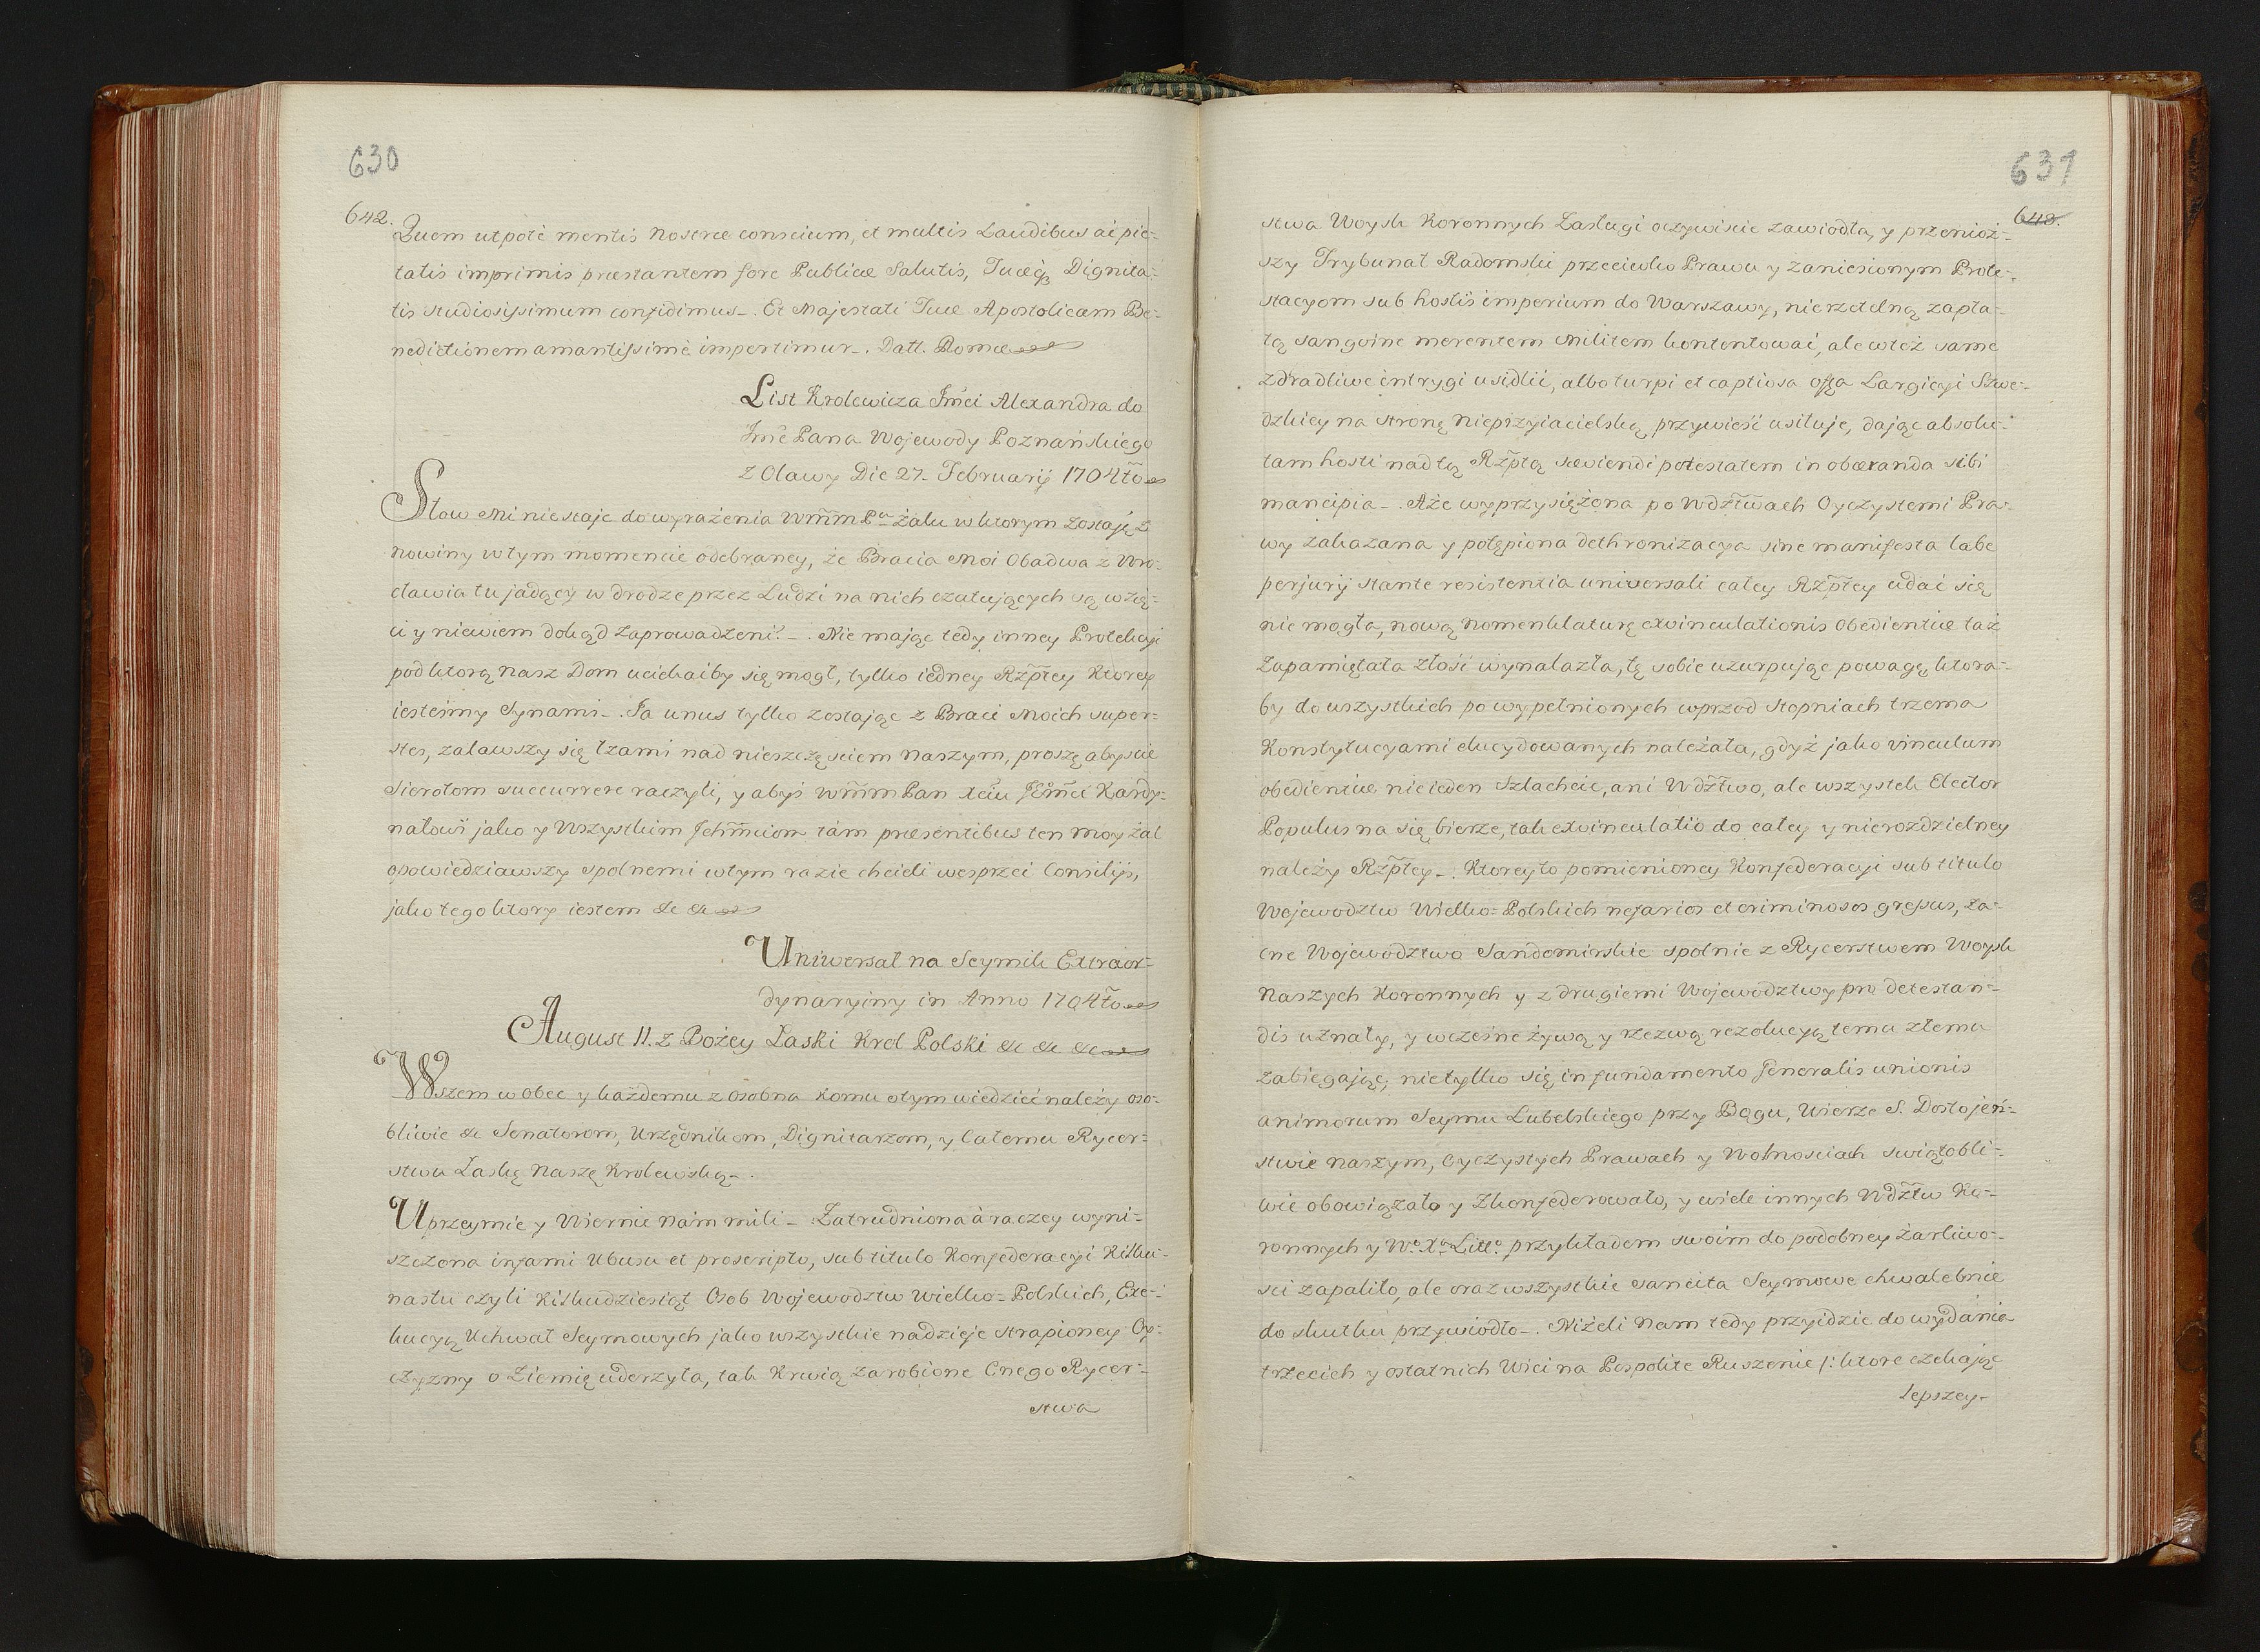 630
642.
Quem utpotè mentis Nostræ conscium, et multis Laudibus ac pie-
tatis imprimis præstantem fore Publicæ Salutis, Tuæq Dignita-
tis studiosissimum confidimus_. Et Majestati Tuæ Apostolicam Be-
nedictionem amantissimè impertimur_. Datt. Romæ
List Krolewica Jmci Alexandra do
Jmc Pana Wojewody Poznańskiego
z Olawy Die 27. Februarij 1704to
Słow Mi nie staje do wyrażenia WmmPa żalu w ktorym zostaję z
nowiny w tym momencie odebraney, że Bracia Moi Obadwa z Wro-
cławia tu jadący w drodze przez Ludzi na nich czatujących są wzię-
ci y niewiem dokąd zaprowadzeni?_. Nie mając tedy inney Protekcyi
pod ktorą nasz Dom uciekaćby się mogł, tylko iedney Rzptey Ktorey
iestesmy Synami_. Ja unus tylko zostając z Braci Moich super-
stes, zalawszy się łzami nad nieszczęsciem Naszym, proszę abyscie
Sierotom succurrere raczyli, y abyś WmmPan Xciu JEmci Kardy-
nałowi jako y Wszystkim Jchmciom tam præsentibus ten moy żal
opowiedziawszy spolnemi w tym razie chcieli wesprzeć Consilijs,
jako tego ktory iestem &c &c
Uniwersał na Seymik Extraor-
dynaryiny in Anno 1704to
August II. z Bożey Łaski Krol Polski &c &c &c
Wszem w Obec y każdemu z Osobna Komu otym wiedzieć należy oso-
bliwie &c Senatorom, Urzędnikom, Dignitarzom, y Całemu Rycer-
stwu Łaskę Naszę Krolewską_.
Uprzeymie y Wiernie Nam mili_ Zatrudniona à raczey wyni-
szczona infami Ubusu et proscripto, sub titulo Konfederacyi Kilku-
nastu czyli Kilkudziesiąt Osob Wojewodztw Wielko=Polskich, Exe-
kucyą Uchwał Seymowych jako wszystkie nadzieje strapioney Oy-
czyzny o Ziemię uderzyła, tak Krwią zarobione Cnego Rycer-
stwa
631
642.
stwa Woysk Koronnych Zasługi oczywiscie zawiodła, y przenioz-
szy Trybunał Radomski przeciwko Prawu y zaniesionym Prote-
stacyom sub hostis imperium do Warszawy, nierzetelną zapła-
tą sanguine merentem Militem kontentować, ale w też same
zdradliwe intrygi usidlić, albo turpi et captiosa offa Largicyi Szwe-
dzkiey na stronę nieprzyiacielską przywieść usiłuje, dając absolu-
tam hosti nad tą Rzptą sæviendi potestatem in obæranda sibi
mancipia_. Aże wyprzysiężona po Wdztwach Oyczystemi Pra-
wy zakazana y potępiona dethronizacya sine manifesta labe
perjurij stante resistentia universali całey Rzptey udać się
nie mogła, nową Nomenklaturę exvinculationis Obedientiæ taż
Zapamiętała złość wynalazła, tę sobie uzurpując powagę, ktora-
by do wszystkich po wypełnionych wprzod stopniach trzema
Konstytucyami elucydowanych należała, gdyż jako vinculum
obedientiæ nie ieden Szlachcic, ani Wdztwo, ale wszystek Elector
Populus na się bierze, tak exvinculatio do całey y nierozdzielney
należy Rzptey_. Ktorey to pomienioney Konfederacyi sub titulo
Wojewodztw Wielko=Polskich nefarios et criminosos gressus, za-
cne Wojewodztwo Sandomirskie spolnie z Rycerstwem Woysk
Naszych Koronnych y z drugiemi Wojewodztwy pro detestan-
dis uznały, y wczesne żywą y rzezwą rezolucyą temu złemu
zabiegając, nie tylko się in fundamento Generalis unionis
animorum Seymu Lubelskiego przy Bogu, Wierze S. Dostojeń-
stwie Naszym, Oyczystych Prawach y Wolnosciach swiątobli-
wie obowiązało y Zkonfederowało, y wiele innych Wdztw Ko-
ronnych y Wo Xa Litto przykładem swoim do podobney żarliwo-
sci zapaliło, ale oraz wszystkie sancita Seymowe chwalebnie
do skutku przywiodło_. Niżeli Nam tedy przyidzie do wydania
trzecich y ostatnich Wici na Pospolite Ruszenie /: ktore czekając
lepszey-